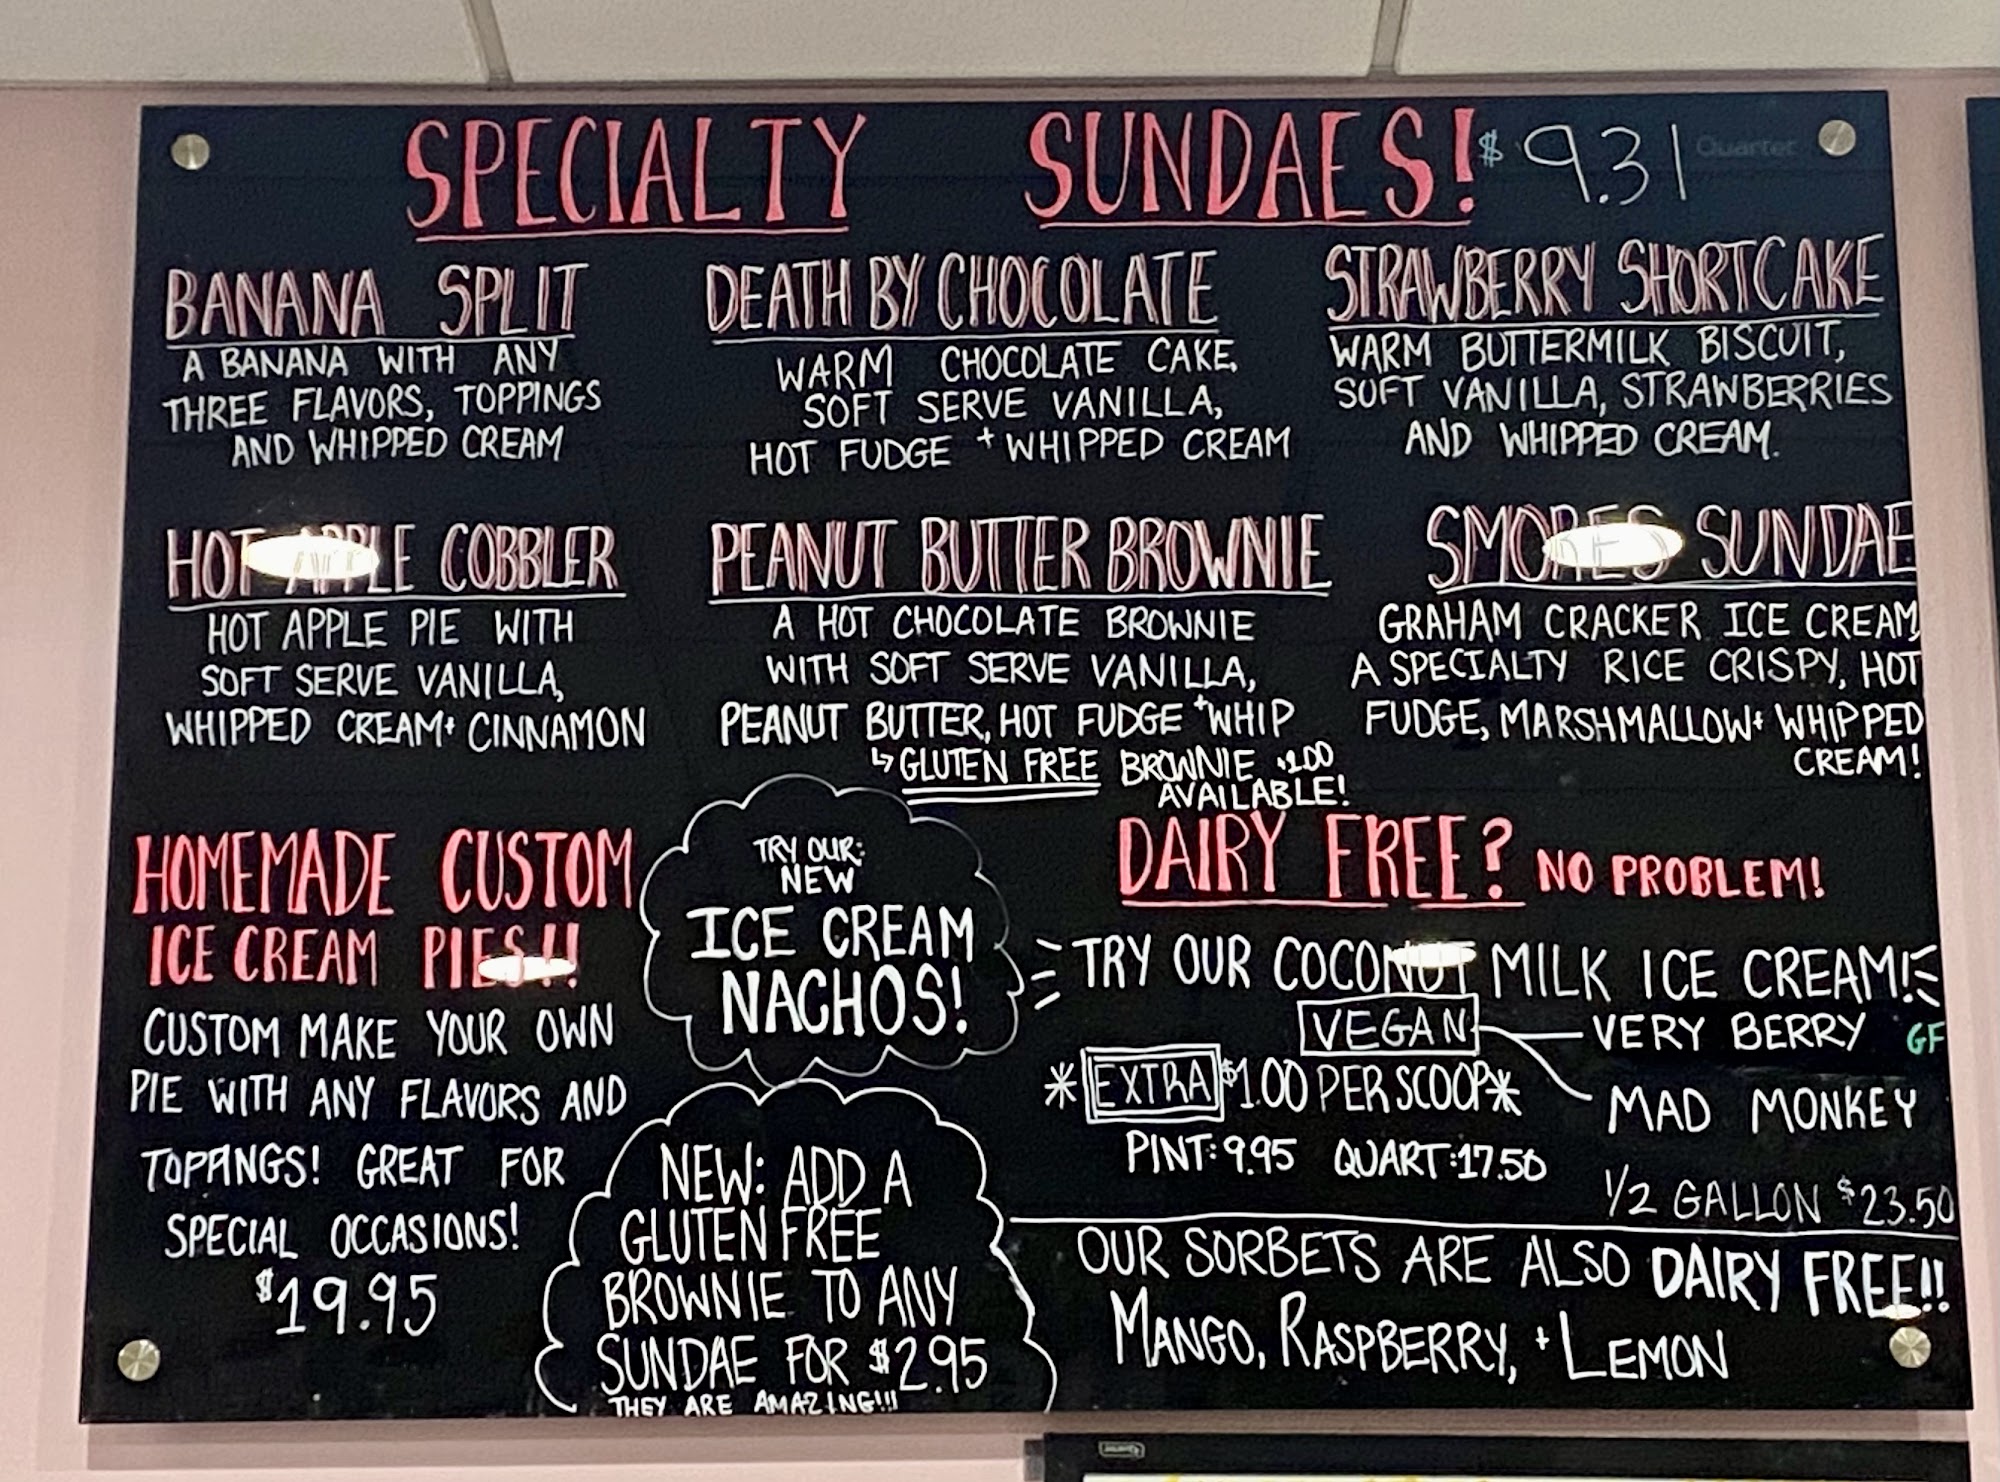 SPECIALTY SUNDAES! $9.31
Quartet
BANANA SPLIT
A BANANA WITH ANY
THREE FLAVORS, TOPPINGS
AND WHIPPED CREAM
DEATH BY CHOCOLATE
WARM CHOCOLATE CAKE,
SOFT SERVE VANILLA,
HOT FUDGE + WHIPPED CREAM
STRAWBERRY SHORTCAKE
WARM BUTTERMILK BISCUIT,
SOFT VANILLA, STRAWBERRIES
AND WHIPPED CREAM.
HOT APPLE COBBLER
HOT APPLE PIE WITH
SOFT SERVE VANILLA,
WHIPPED CREAM + CINNAMON
PEANUT BUTTER BROWNIE
A HOT CHOCOLATE BROWNIE
WITH SOFT SERVE VANILLA,
PEANUT BUTTER, HOT FUDGE + WHIP
↳ GLUTEN FREE BROWNIE $1.00
AVAILABLE!
SMORES SUNDAE
GRAHAM CRACKER ICE CREAM,
A SPECIALTY RICE CRISPY, HOT
FUDGE, MARSHMALLOW + WHIPPED
CREAM!
HOMEMADE CUSTOM
ICE CREAM PIES!!
CUSTOM MAKE YOUR OWN
PIE WITH ANY FLAVORS AND
TOPPINGS! GREAT FOR
SPECIAL OCCASIONS!
$19.95
TRY OUR:
NEW
ICE CREAM
NACHOS!
NEW: ADD A
GLUTEN FREE
BROWNIE TO ANY
SUNDAE FOR $2.95
THEY ARE AMAZING!!!
DAIRY FREE? NO PROBLEM!
TRY OUR COCONUT MILK ICE CREAM!
VEGAN VERY BERRY GF
MAD MONKEY
* EXTRA $1.00 PER SCOOP *
PINT: 9.95 QUART: 17.50
1/2 GALLON $23.50
OUR SORBETS ARE ALSO DAIRY FREE!!
MANGO, RASPBERRY, + LEMON